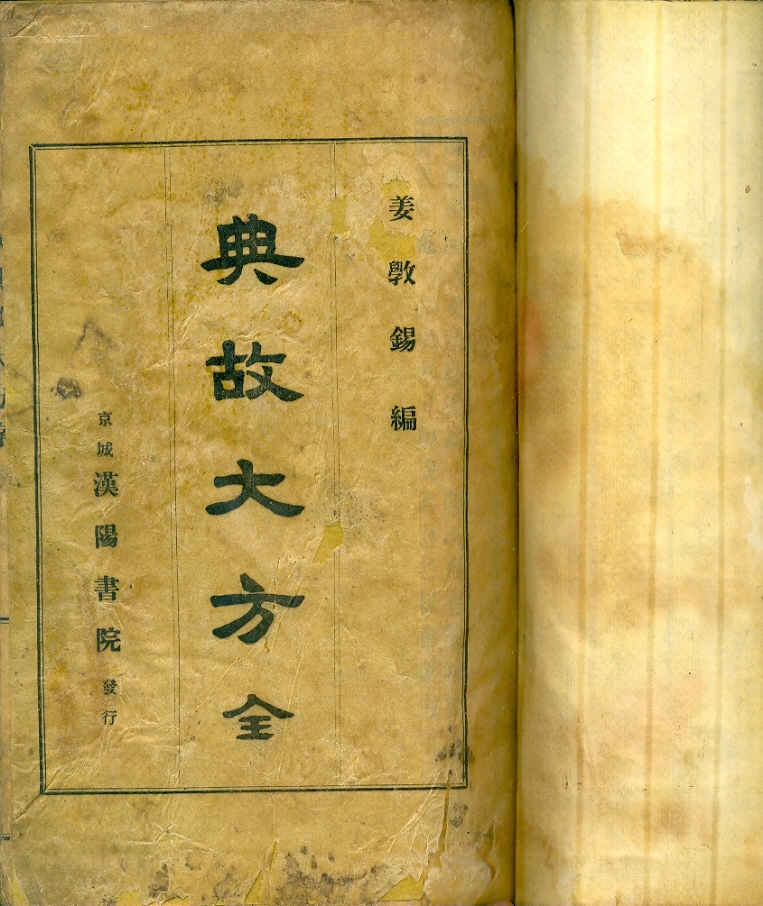 姜斅錫編
典故大方全
京城漢陽書院發行